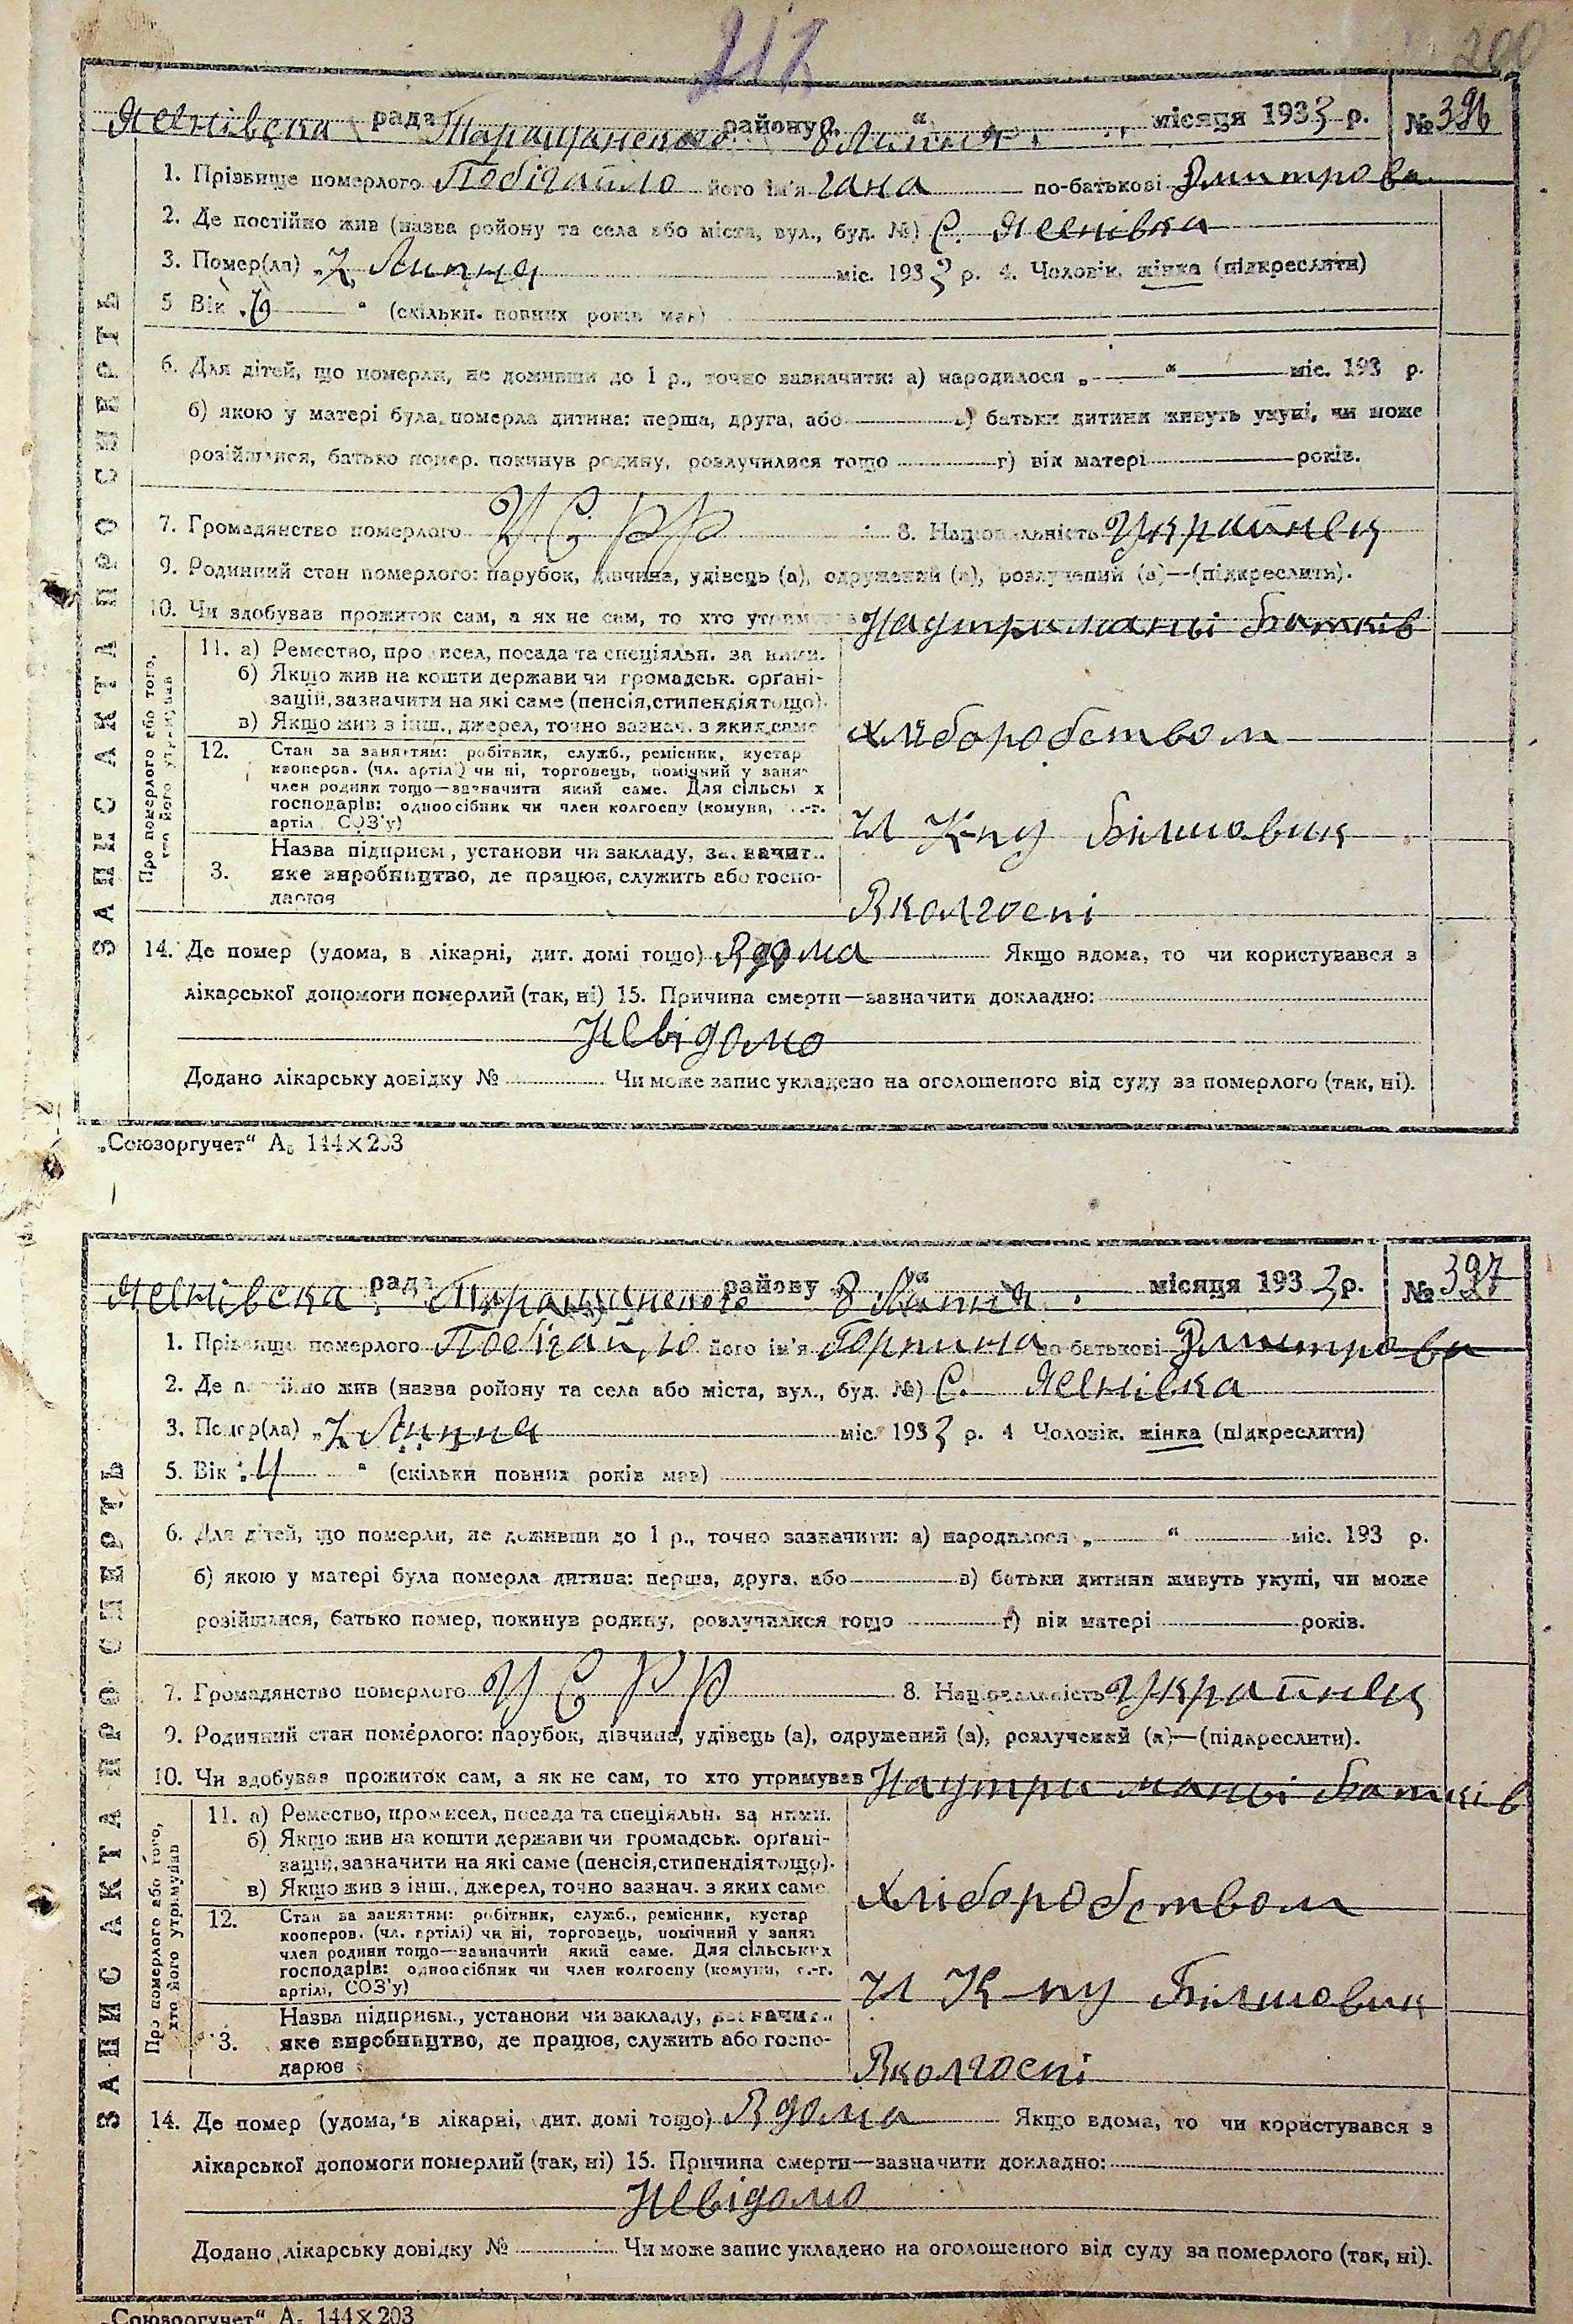 212
200
Яснівська рада Таращанського району 8 Липня місяця 1933 р. № 396
1. Прізвище померлого Побігайло його ім'я Гана по-батькові Дмитрова
2. Де постійно жив (назва ройону та села або міста, вул., буд. №) С. Яснівка
3. Помер(ла) „7 Липня міс. 1933 р. 4. Чоловік, жінка (підкреслити)
5 Вік „ “ (скільки повних років мав)
6. Для дітей, що померли, не доживши до 1 р., точно зазначити: а) народилося „ “ міс. 193 р.
б) якою у матері була померла дитина: перша, друга, або в) батьки дитини живуть укупі, чи може
розійшлися, батько помер, покинув родину, розлучилися тощо г) вік матері років.
7. Громадянство померлого УСРР 8. Національність Українец
9. Родинний стан померлого: парубок, дівчина, удівець (а), одружений (а), розлучений (а)—(підкреслить).
10. Чи здобував прожиток сам, а як не сам, то хто утримував Наутриманьі Батьків
11. а) Ремество, промисел, посада та спеціяльн. за ними.
б) Якщо жив на кошти держави чи громадськ. органі-
зацій, зазначити на які саме (пенсія, стипендія тощо).
в) Якщо жив з інш., джерел, точно зазнач. з яких саме
хліборобством
12. Стан за заняттям: робітник, служб., ремісник, кустар
кооперов. (чл. артілі) чи ні, торговець, помічний у занят
член родини тощо—зазначити який саме. Для сільських
господарів: одноосібник чи член колгоспу (комуни, с.-г.
артілі, СОЗ'у)
Чл К-пу Більшовик
3. Назва підприєм., установи чи закладу, зазначити
яке виробництво, де працює, служить або госпо-
дарює
Вколгоспі
14. Де помер (удома, в лікарні, дит. домі тощо) Вдома Якщо вдома, то чи користувався з
лікарської допомоги померлий (так, ні) 15. Причина смерти—зазначити докладно:
Невідомо
Додано лікарську довідку № Чи може запис укладено на оголошеного від суду за померлого (так, ні).
ЗАПИС АКТА ПРО СМЕРТЬ
Про померлого або того,
хто його утримував
„Союзоргучет“ А5 144×203
Яснівська рада Таращанського району 8 Липня місяця 1933 р. № 397
1. Прізвище померлого Побігайло його ім'я Горпина по-батькові Дмитрова
2. Де постійно жив (назва ройону та села або міста, вул., буд. №) С. Яснівка
3. Помер(ла) „7 Липня міс. 1933 р. 4 Чоловік, жінка (підкреслити)
5. Вік „4 “ (скільки повних років мав)
6. Для дітей, що померли, не доживши до 1 р., точно зазначити: а) народилося „ “ міс. 193 р.
б) якою у матері була померла дитина: перша, друга, або в) батьки дитини живуть укупі, чи може
розійшлися, батько помер, покинув родину, розлучилися тощо г) вік матері років.
7. Громадянство померлого УСРР 8. Національність Українец
9. Родинний стан померлого: парубок, дівчина, удівець (а), одружений (а), розлучений (а)—(підкреслити).
10. Чи здобував прожиток сам, а як не сам, то хто утримував Наутриманьі Батьків
11. а) Ремество, промисел, посада та спеціяльн. за ними.
б) Якщо жив на кошти держави чи громадськ. органі-
зацій, зазначити на які саме (пенсія, стипендія тощо).
в) Якщо жив з інш., джерел, точно зазнач. з яких саме
хліборобством
12. Стан за заняттям: робітник, служб., ремісник, кустар
кооперов. (чл. артілі) чи ні, торговець, помічний у занят
член родини тощо—зазначити який саме. Для сільських
господарів: одноосібник чи член колгоспу (комуни, с.-г.
артілі, СОЗ'у)
Чл К-пу Більшовик
3. Назва підприєм., установи чи закладу, зазначити
яке виробництво, де працює, служить або госпо-
дарює
Вколгоспі
14. Де помер (удома, в лікарні, дит. домі тощо) Вдома Якщо вдома, то чи користувався з
лікарської допомоги померлий (так, ні) 15. Причина смерти—зазначити докладно:
Невідомо
Додано лікарську довідку № Чи може запис укладено на оголошеного від суду за померлого (так, ні).
ЗАПИС АКТА ПРО СМЕРТЬ
Про померлого або того,
хто його утримував
„Союзоргучет“ А5 144×203